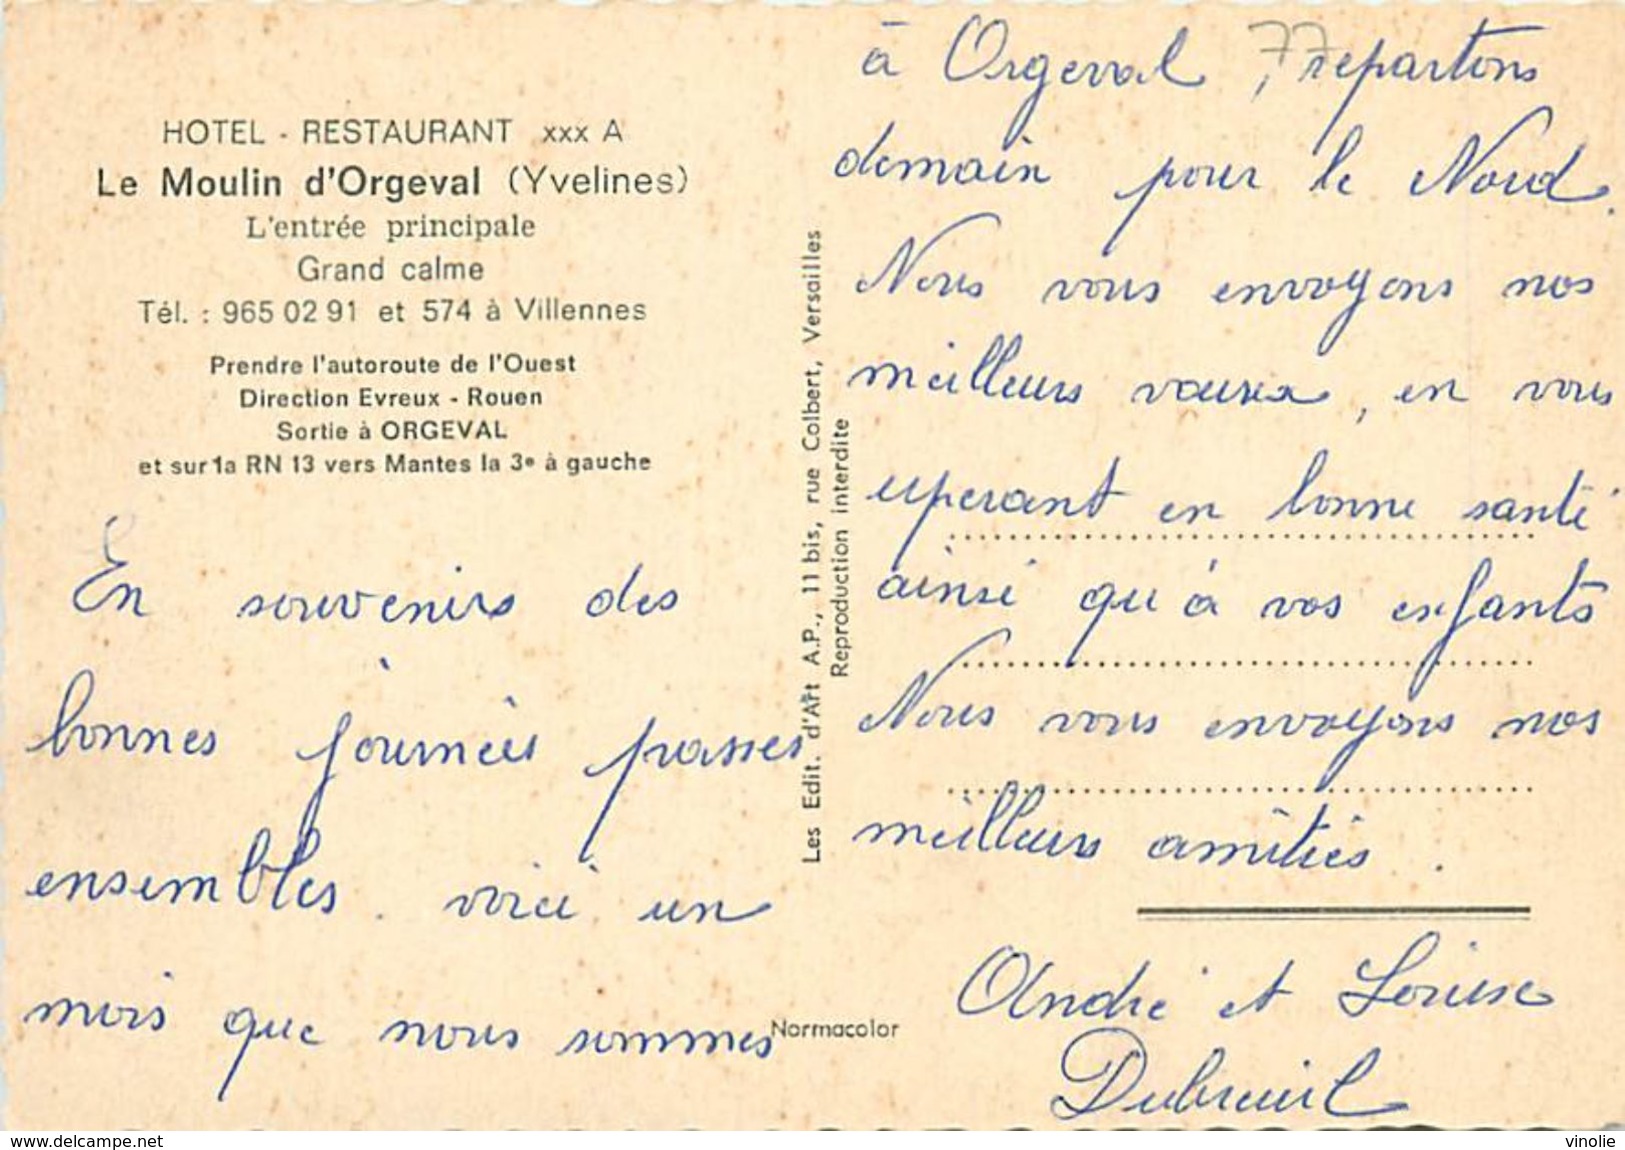 HOTEL - RESTAURANT xxx A
Le Moulin d'Orgeval (Yvelines)
L'entrée principale
Grand calme
Tél. : 965 02 91 et 574 à Villennes
Prendre l'autoroute de l'Ouest
Direction Evreux - Rouen
Sortie à ORGEVAL
et sur la RN 13 vers Mantes la 3e à gauche
En souvenirs des
bonnes journées passes
ensembles. voici un
mois que nous sommes
Les Edit. d'Art A.P., 11 bis, rue Colbert, Versailles
Reproduction interdite
Normacolor
77
à Orgeval, repartons
demain pour le Nord.
Nous vous envoyons nos
meilleurs vœux, en vous
esperant en bonne santé
ainsi qu'à vos enfants
Nous vous envoyons nos
meilleurs amitiés.
André et Louise
Dubreuil
www.delcampe.net
vinolie